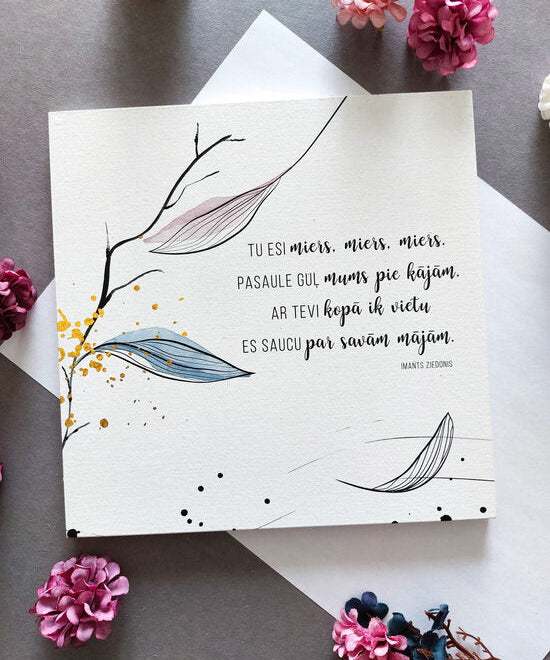 TU ESI miers, miers, miers.
PASAULE GUĻ mums pie kājām.
AR TEVI kopā ik vietu
ES SAUCU par savām mājām.
IMANTS ZIEDONIS